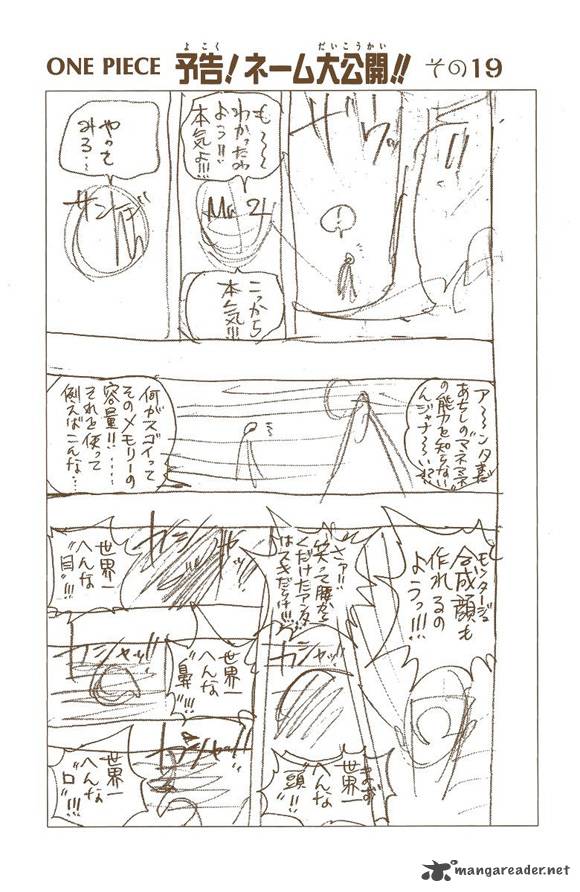 よこく だいこうかい
ONE PIECE 予告!ネーム大公開!! その19
も〜〜
わかったわ
よう!!
本気よ!!!
Mr.2
こっから
本気!!!
やって
みろ…
サンジ
ア〜〜ンタまだ
あちしの"マネマネ"
の能力を知らない
んじゃな〜〜い!?
何がスゴイって
そのメモリーの
容量!!……
それを使って
例えばこんな…
モンタージュ
合成顔も
作れるの
ようっ!!!
さァ!!
笑って腰から
くだけたアンタ
はスキだらけ!!!
まず
世界一
へんな
"頭"!!!
世界一
へんな
"目"!!!
世界一
へんな
"鼻"!!!
世界一
へんな
"口"!!!
mangareader.net